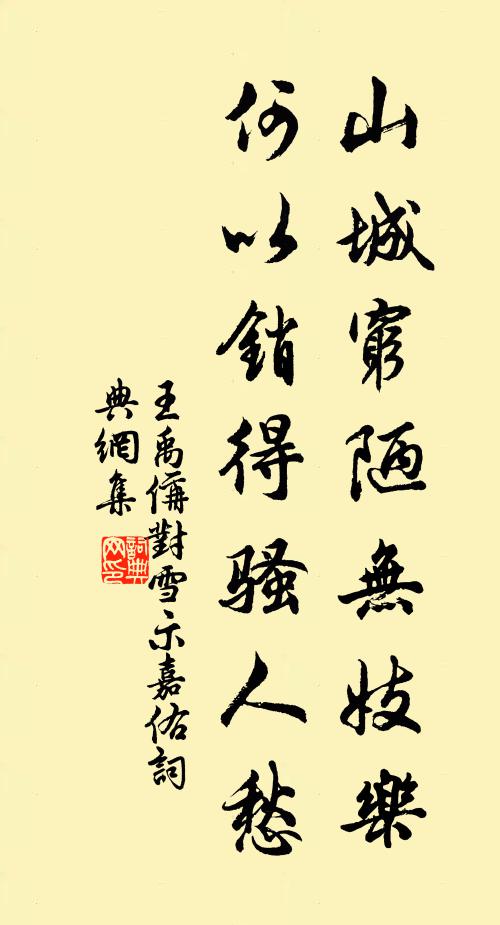 山城窮陋無妓樂
何以銷得騷人愁
王禹偁對雪示嘉佑詞
典網集
詞典
网印